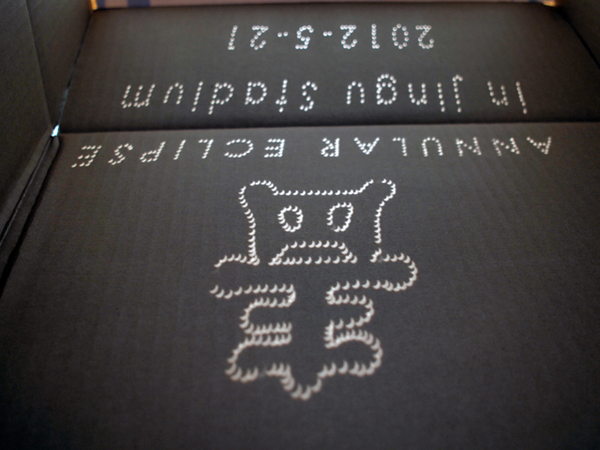 ANNULAR ECLIPSE
in Jingu Stadium
2012-5-21